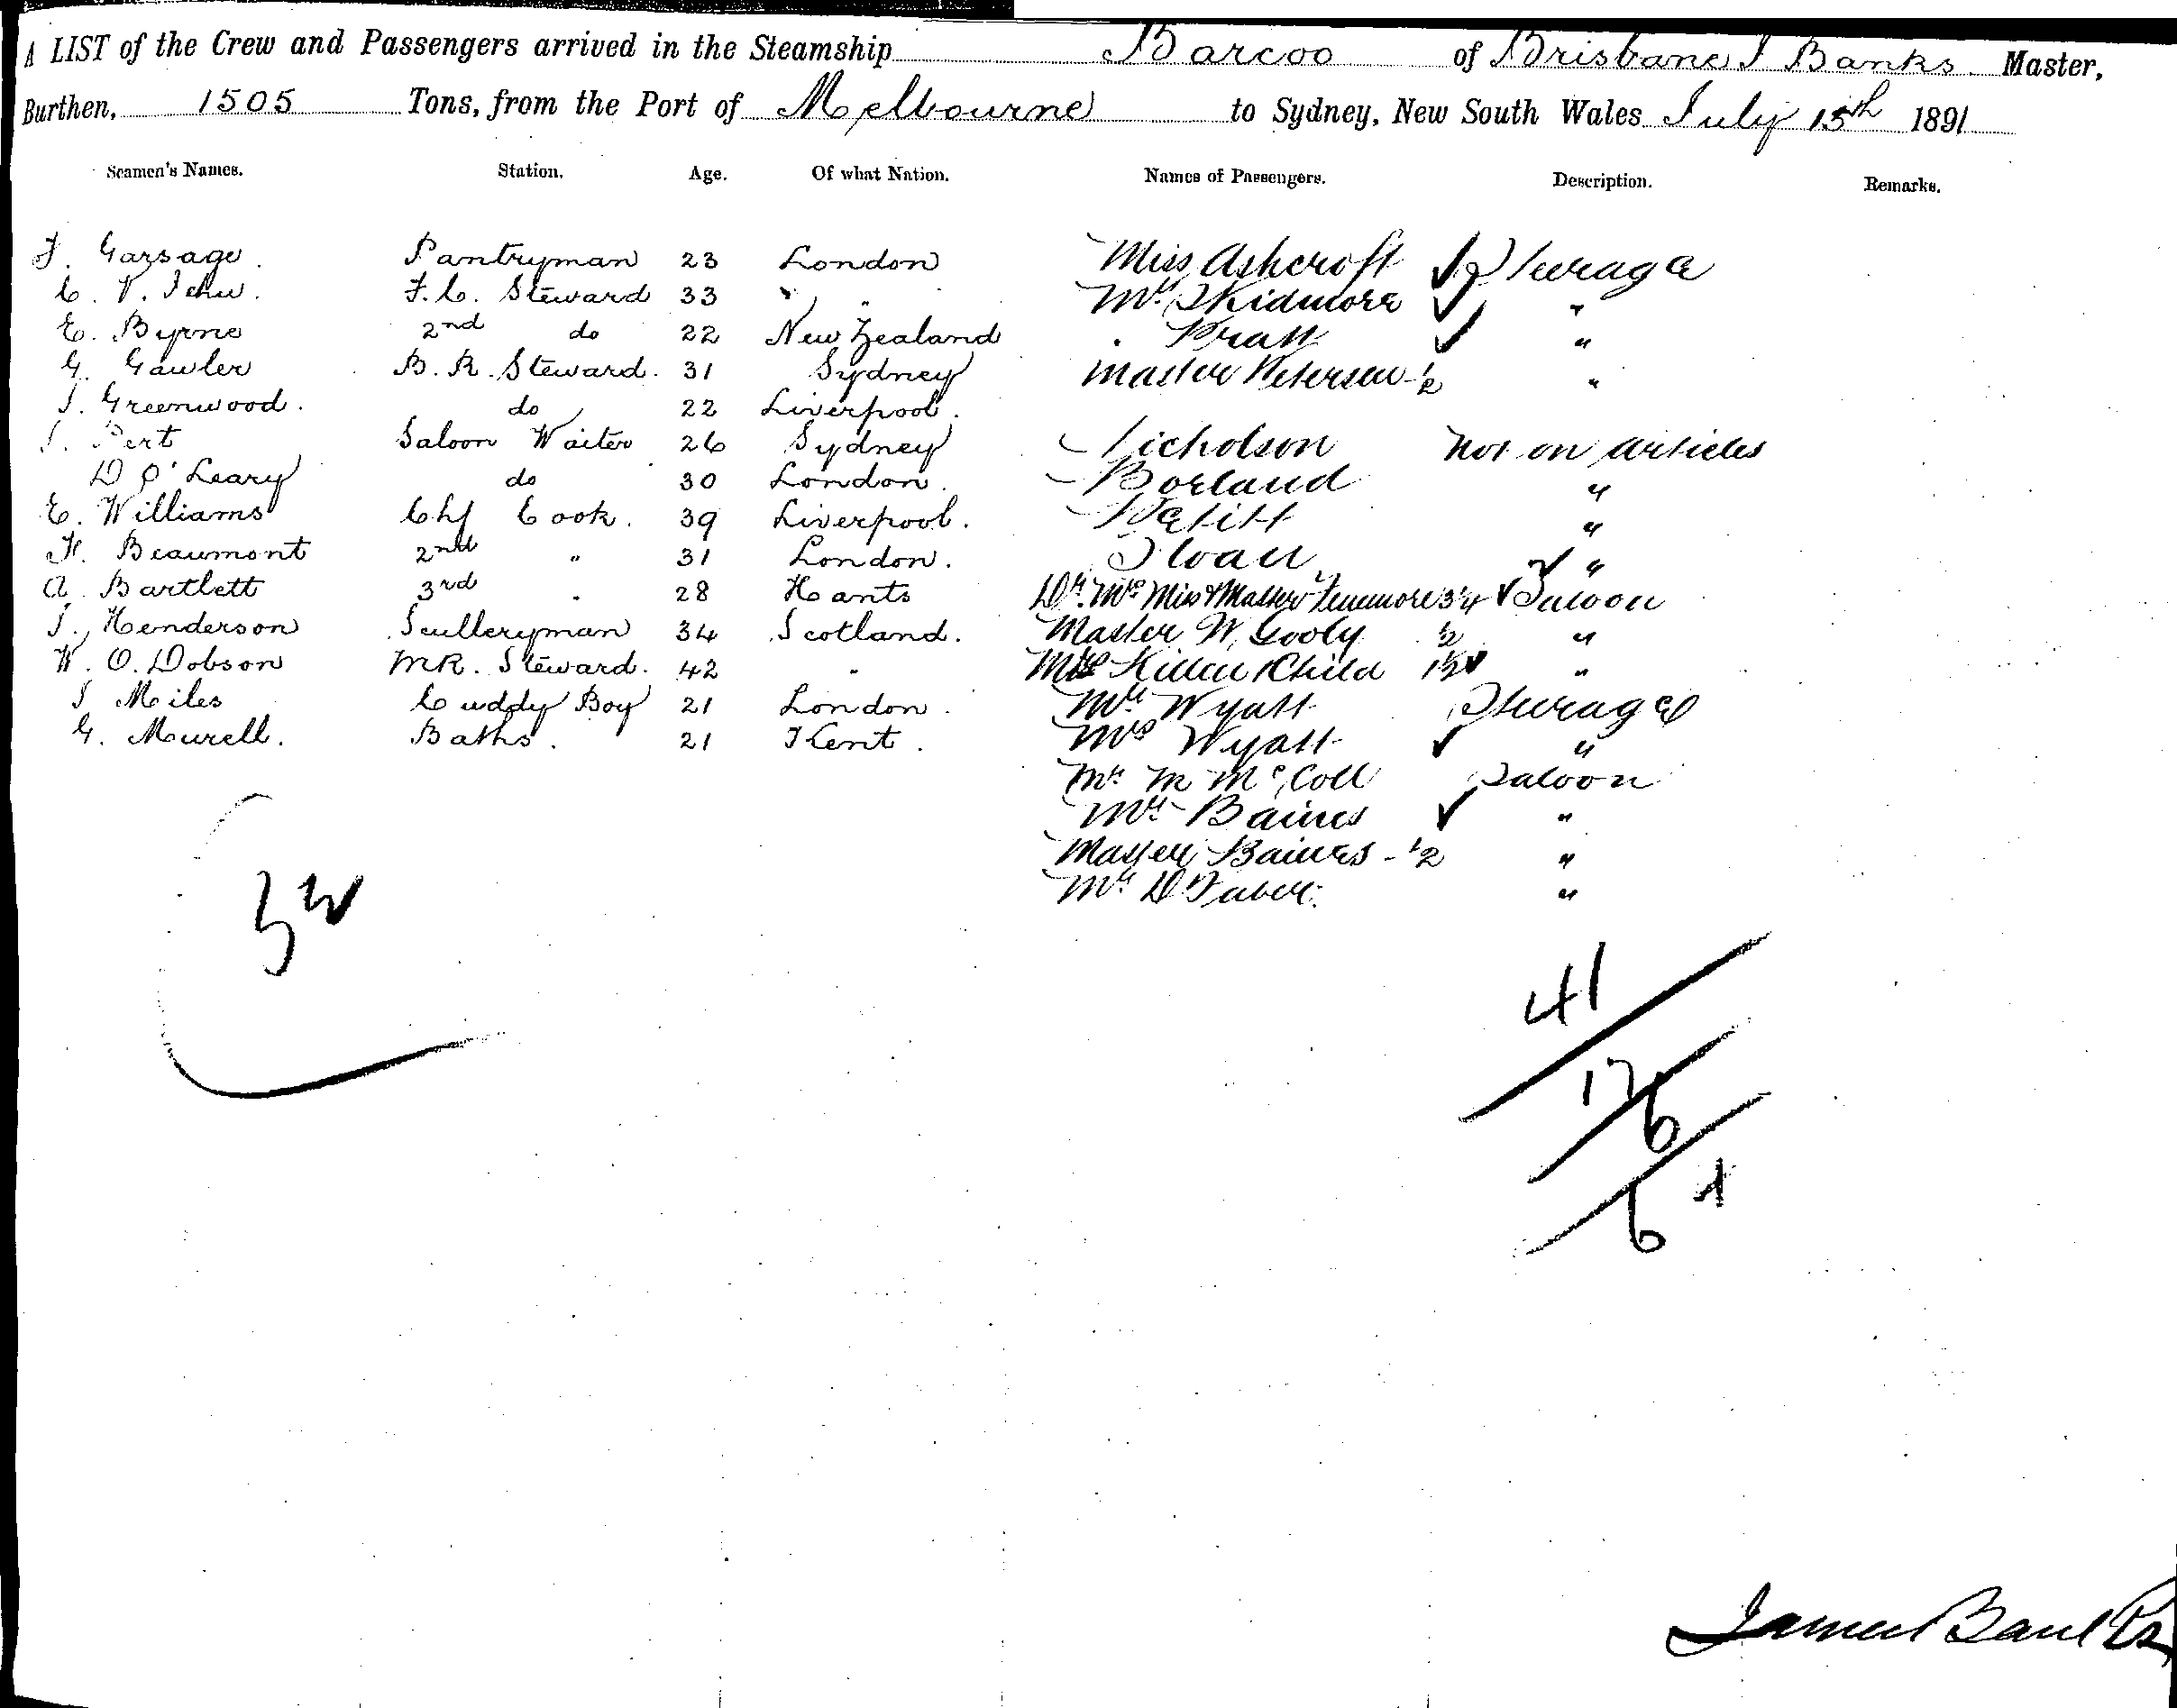 A LIST of the Crew and Passengers arrived in the Steamship Barcoo of Brisbane J Banks Master,
Burthen, 1505 Tons, from the Port of Melbourne to Sydney, New South Wales July 15th 1891
Seamen's Names. Station. Age. Of what Nation. Names of Passengers. Description. Remarks.
F. Garsage. Pantryman 23 London Miss Ashcroft Steerage
C. V. F.C. Steward 33 " " Mr. Skidmore "
E. Byrne 2nd do 22 New Zealand Pratt "
G. Gawler B.R. Steward. 31 Sydney Master Petersen ½ "
J. Greenwood. do 22 Liverpool.
J. Pert Saloon Waiter 26 Sydney Nicholson Not on Articles
D O'Leary do 30 London. Borland "
E. Williams Chf Cook. 39 Liverpool. Petitt "
H. Beaumont 2nd " 31 London. Sloan "
A. Bartlett 3rd " 28 Hants Dr. Mrs Miss & Master Fenemore 3¼ Saloon
J. Henderson Sculleryman 34 Scotland. Master W. ½ "
W. O. Dobson MR. Steward. 42 " Mrs Killen & Child 1½ "
J Miles Cuddy Boy 21 London. Mr. Wyatt Steerage
G. Murell. Baths. 21 Kent. Mrs Wyatt "
Mr. M McColl Saloon
Mr. Baines "
Master Baines - ½ "
Mr. D Faber. "
41
6
6
James Banks